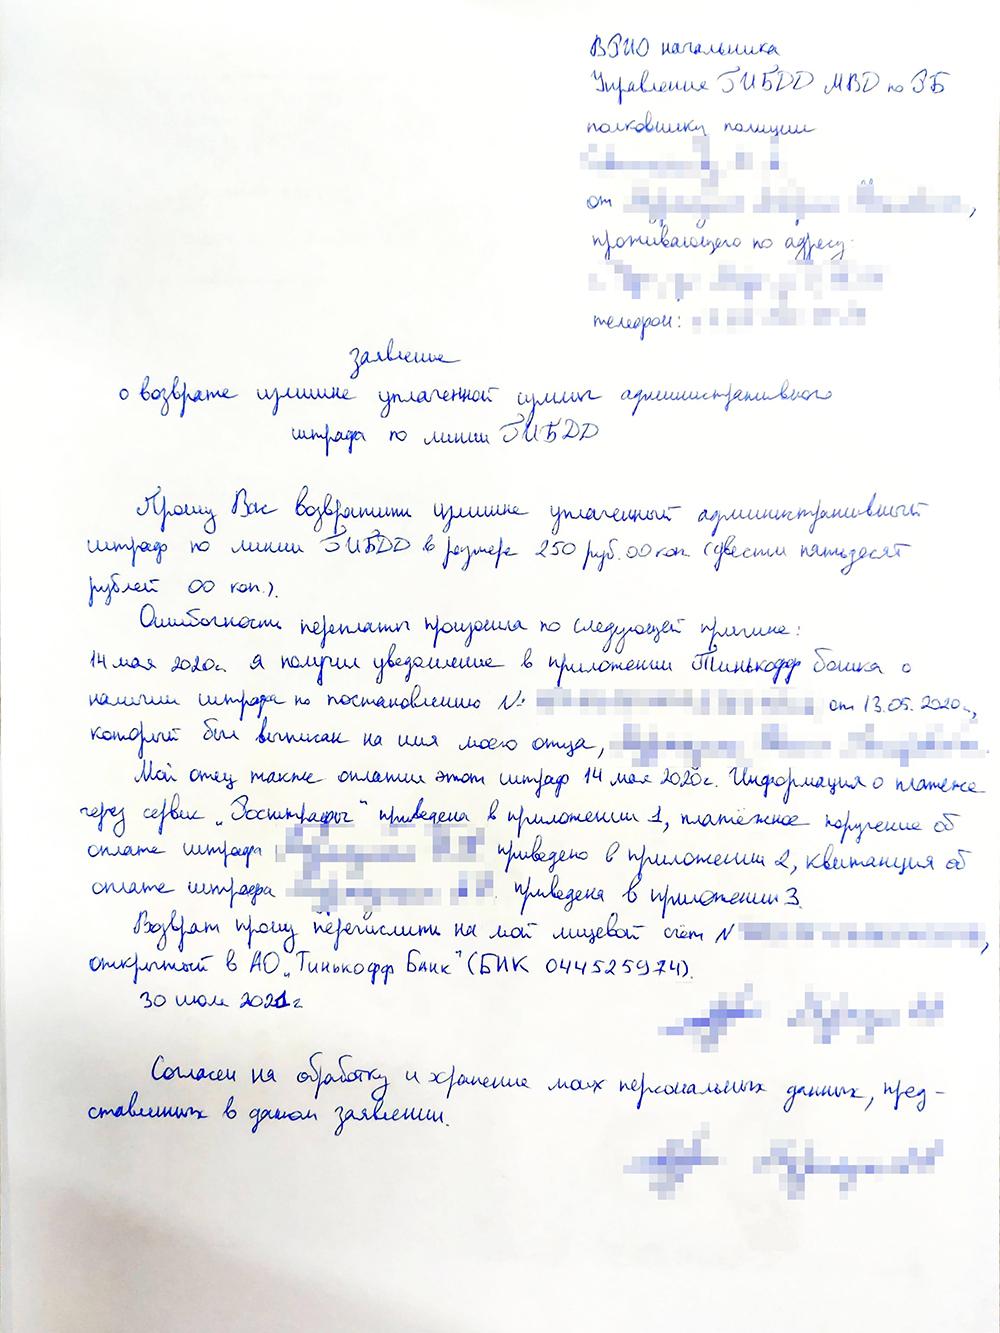 ВРИО начальника
Управление ГИБДД МВД по РБ
полковнику полиции
от
проживающего по адресу:
телефон:
заявление
о возврате излишне уплаченной суммы административного
штрафа по линии ГИБДД
Прошу Вас возвратить излишне уплаченный административный
штраф по линии ГИБДД в размере 250 руб. 00 коп. (двести пятьдесят
рублей 00 коп.).
Ошибочность переплаты произошла по следующей причине:
14 мая 2020г. я получил уведомление в приложении Тинькофф банка о
наличии штрафа по постановлению № от 13.05.2020г.,
который был выписан на имя моего отца,
Мой отец также оплатил этот штраф 14 мая 2020г. Информация о платеже
через сервис „Росштрафы" приведена в приложении 1, платёжное поручение об
оплате штрафа приведено в приложении 2, квитанция об
оплате штрафа приведена в приложении 3.
Возврат прошу перечислить на мой лицевой счёт N ,
открытый в АО „Тинькофф Банк" (БИК 044525974).
30 июля 2021г
Согласен на обработку и хранение моих персональных данных, пред-
ставленных в данном заявлении.